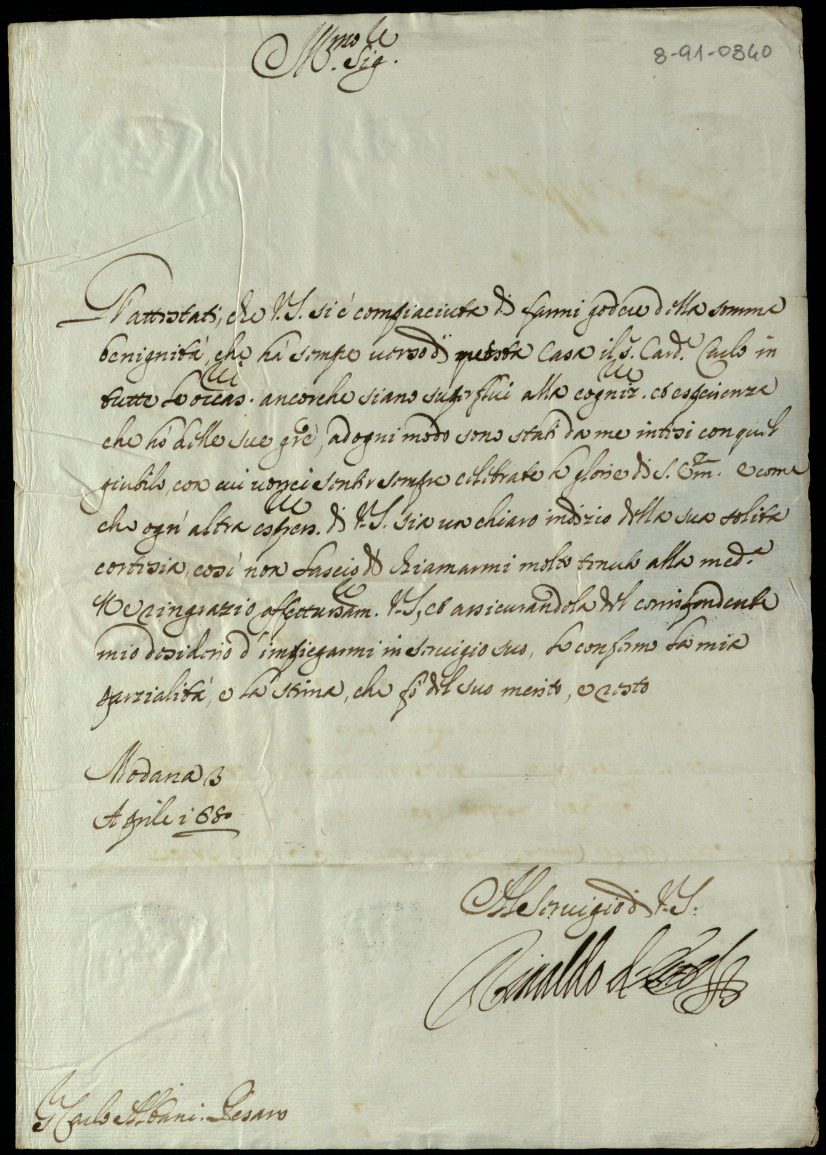 8-91-0340
M.mo Ill.e Sig.
Gl'attestati, che V.S. si è compiaciuta di farmi godere della somma
benignità, che hà sempre verso di questa Casa il S. Card.e Carlo in
tutte le occas.ni ancorche siano superflui alla cogniz.ne et esperienza
che hò delle sue gr.e, ad ogni modo sono stati da me intesi con quel
giubilo, con cui vorrei sentir sempre celebrate le glorie di S. Em.za e come
che ogn' altra espres.ne di V.S. sia un chiaro indizio della sua solita
cortesia, così non lascio di chiamarmi molto tenuto alla med.e
Ne ringrazio affettuosam.te V.S., et assicurandola del corrispondente
mio desiderio d' impiegarmi in servigio suo, le confermo la mia
parzialità, e la stima, che fò del suo merito, e resto
Modana 3
Aprile 1680
Al servigio di V.S.
Rinaldo d'Este
S.r Carlo Albani. Pesaro